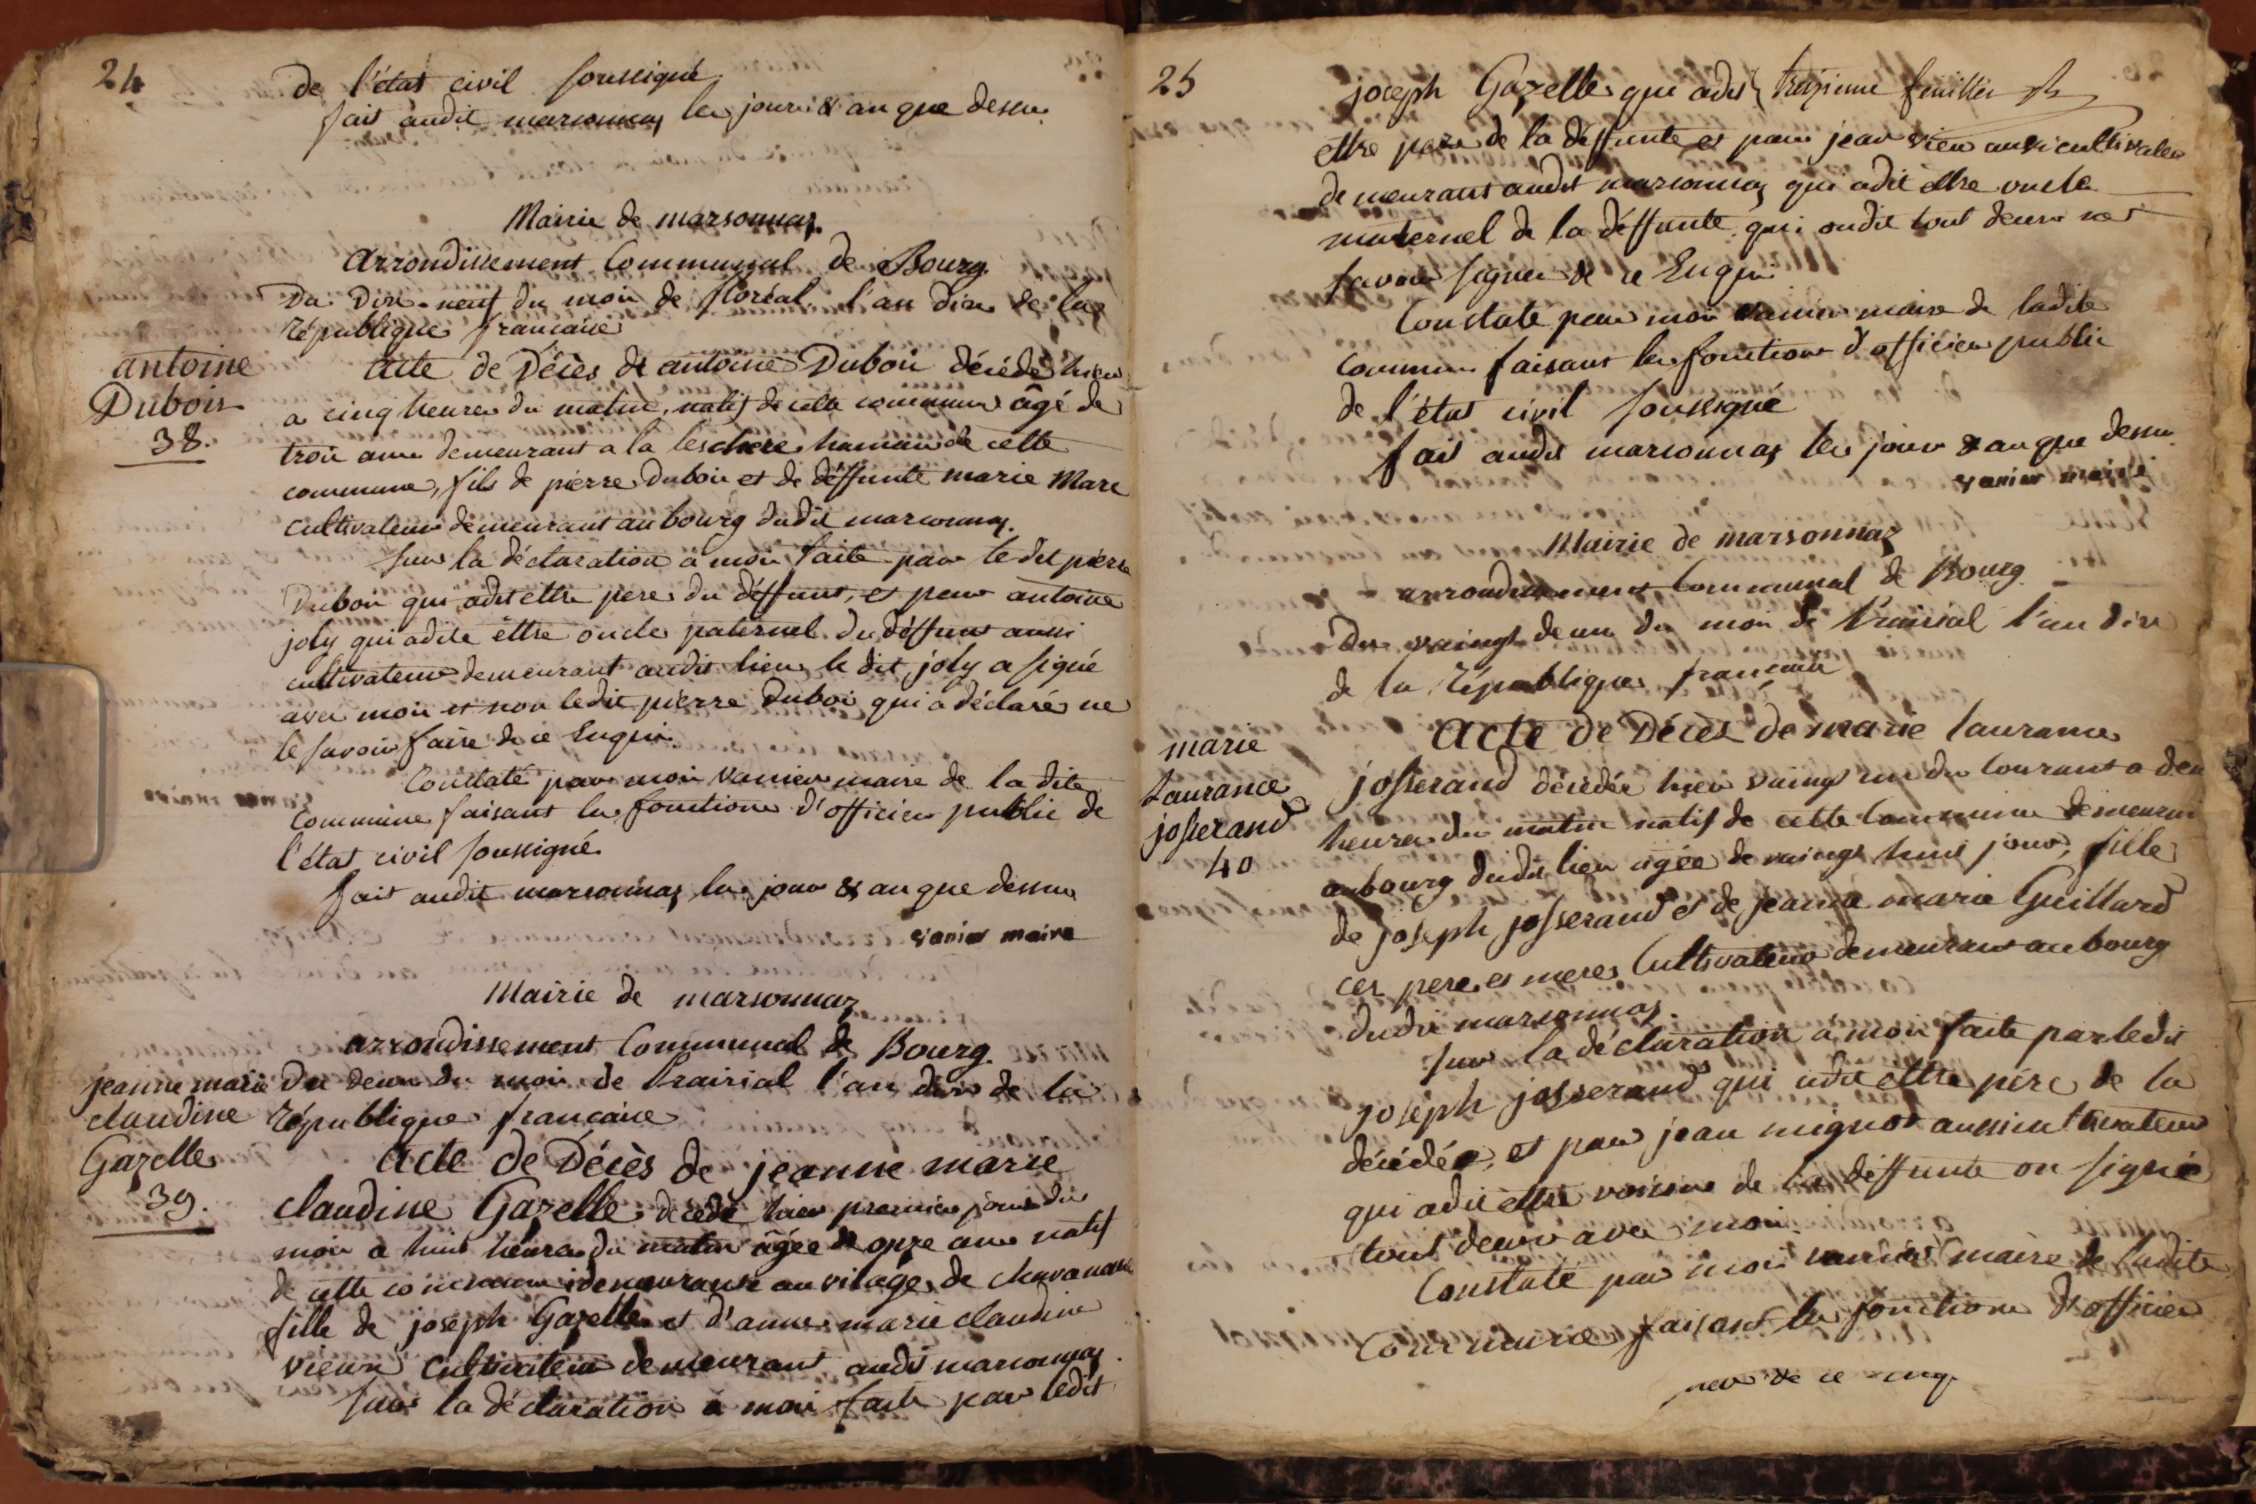 24
de l'état civil soussigné
fait audit marsonnaz les jour & an que dessu
Mairie de marsonnaz
arrondissement Communal de Bourg
Du Dix-neuf du moi de floréal l'an dix de la
république francaise
antoine
Dubois
38.
Acte de Décès de antoine Duboi décédé hier
a cinq heures du matin, natif de cette commune âgé de
troi ans demeurant a la leschere hamau de cette
commune, fils de pierre Duboi et de déffunte marie Mare
cultivateur demeurant au bourg dudit marsonnaz.
Sur la déclaration à moi faite par le dit pierre
Duboi qui adit ettre pere du déffunt, et par antoine
joly qui adite êttre oncle paternel du déffunt aussi
cultivateur demeurant audit lieu le dit joly a signé
avec moi et non ledit pierre Duboi qui a déclaré ne
le savoir faire de ce Enqui
Constaté par moi vanier maire de la dite
commune faisant les fonctions d'officier public de
l'état civil soussigné
vanier maire
fait audit marsonnaz les jour & an que dessu
vanier maire
Mairie de marsonnaz
arrondissement Communal de Bourg.
jeanne marie
claudine
Gazelle
39.
Du deux du moi de Prairial l'an dix de la
république francaise
Acte de Décès de jeanne marie
claudine Gazelle décédé hier premier jour du
moi a huit heures du matin âgée de onze ans natif
de cette commune demeurante au vilage de chavanane
fille de joseph Gazelle et d'anne marie claudine
vieux cultivateur demeurant audit marsonnaz.
Sur la déclaration à moi faite par ledit
25
joseph Gazelle qui adit treizieme feuillet
ettre pere de la deffunte et par jean vieu aussi cultivateur
demeurant audit marsonnaz qui adit ettre oncle
maternel de la déffunte qui ondit tout deux ne
savoir signer de ce Enqui
Constaté par moi vanier maire de ladite
commune faisant les fonctions d'officier public
de l'état civil soussigné
fait audit marsonnaz les jour & an que dessu
vanier maire
Mairie de marsonnaz
arrondissement Communal de Bourg
Du vaingt deux du moi de Prairial l'an dix
de la république francaise
marie
Laurance
josserand
40
Acte de Décès de marie laurance
josserand décédée hier vaingt un du courant a deu
heures du matin natif de cette Commune demeurant
au bourg dudit lieu agée de vaingt huit jour, fille
de joseph josserand et de jeanne marie Guillard
ces pere et meres Cultivateur demeurant au bourg
dudit marsonnaz.
Sur la déclaration à moi faite par ledit
joseph josserand qui adit ettre pére de la
décédée, et par jean mignot aussi cultivateur
qui adit ettre voisin de la déffunte on signé
tout deux avec moi
Constaté par moi vanier maire de ladite
Commune faisant les fonctions d'officier